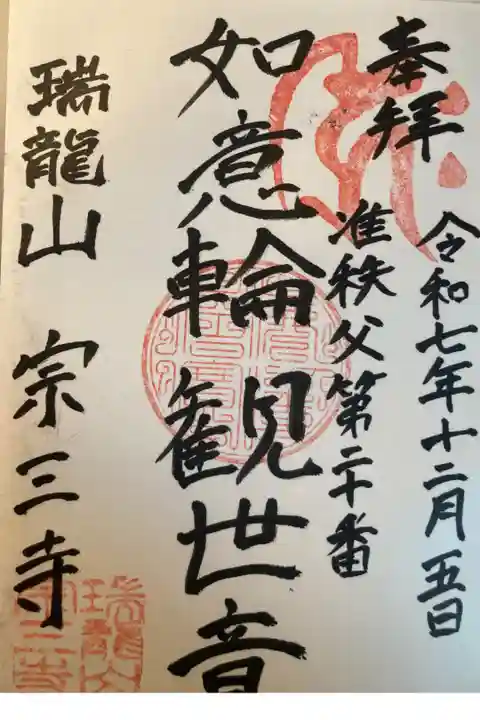 奉拝
令和七年十二月五日
准秩父第二十番
如意輪観世音
瑞龍山 宗三寺
瑞龍山
宗三寺